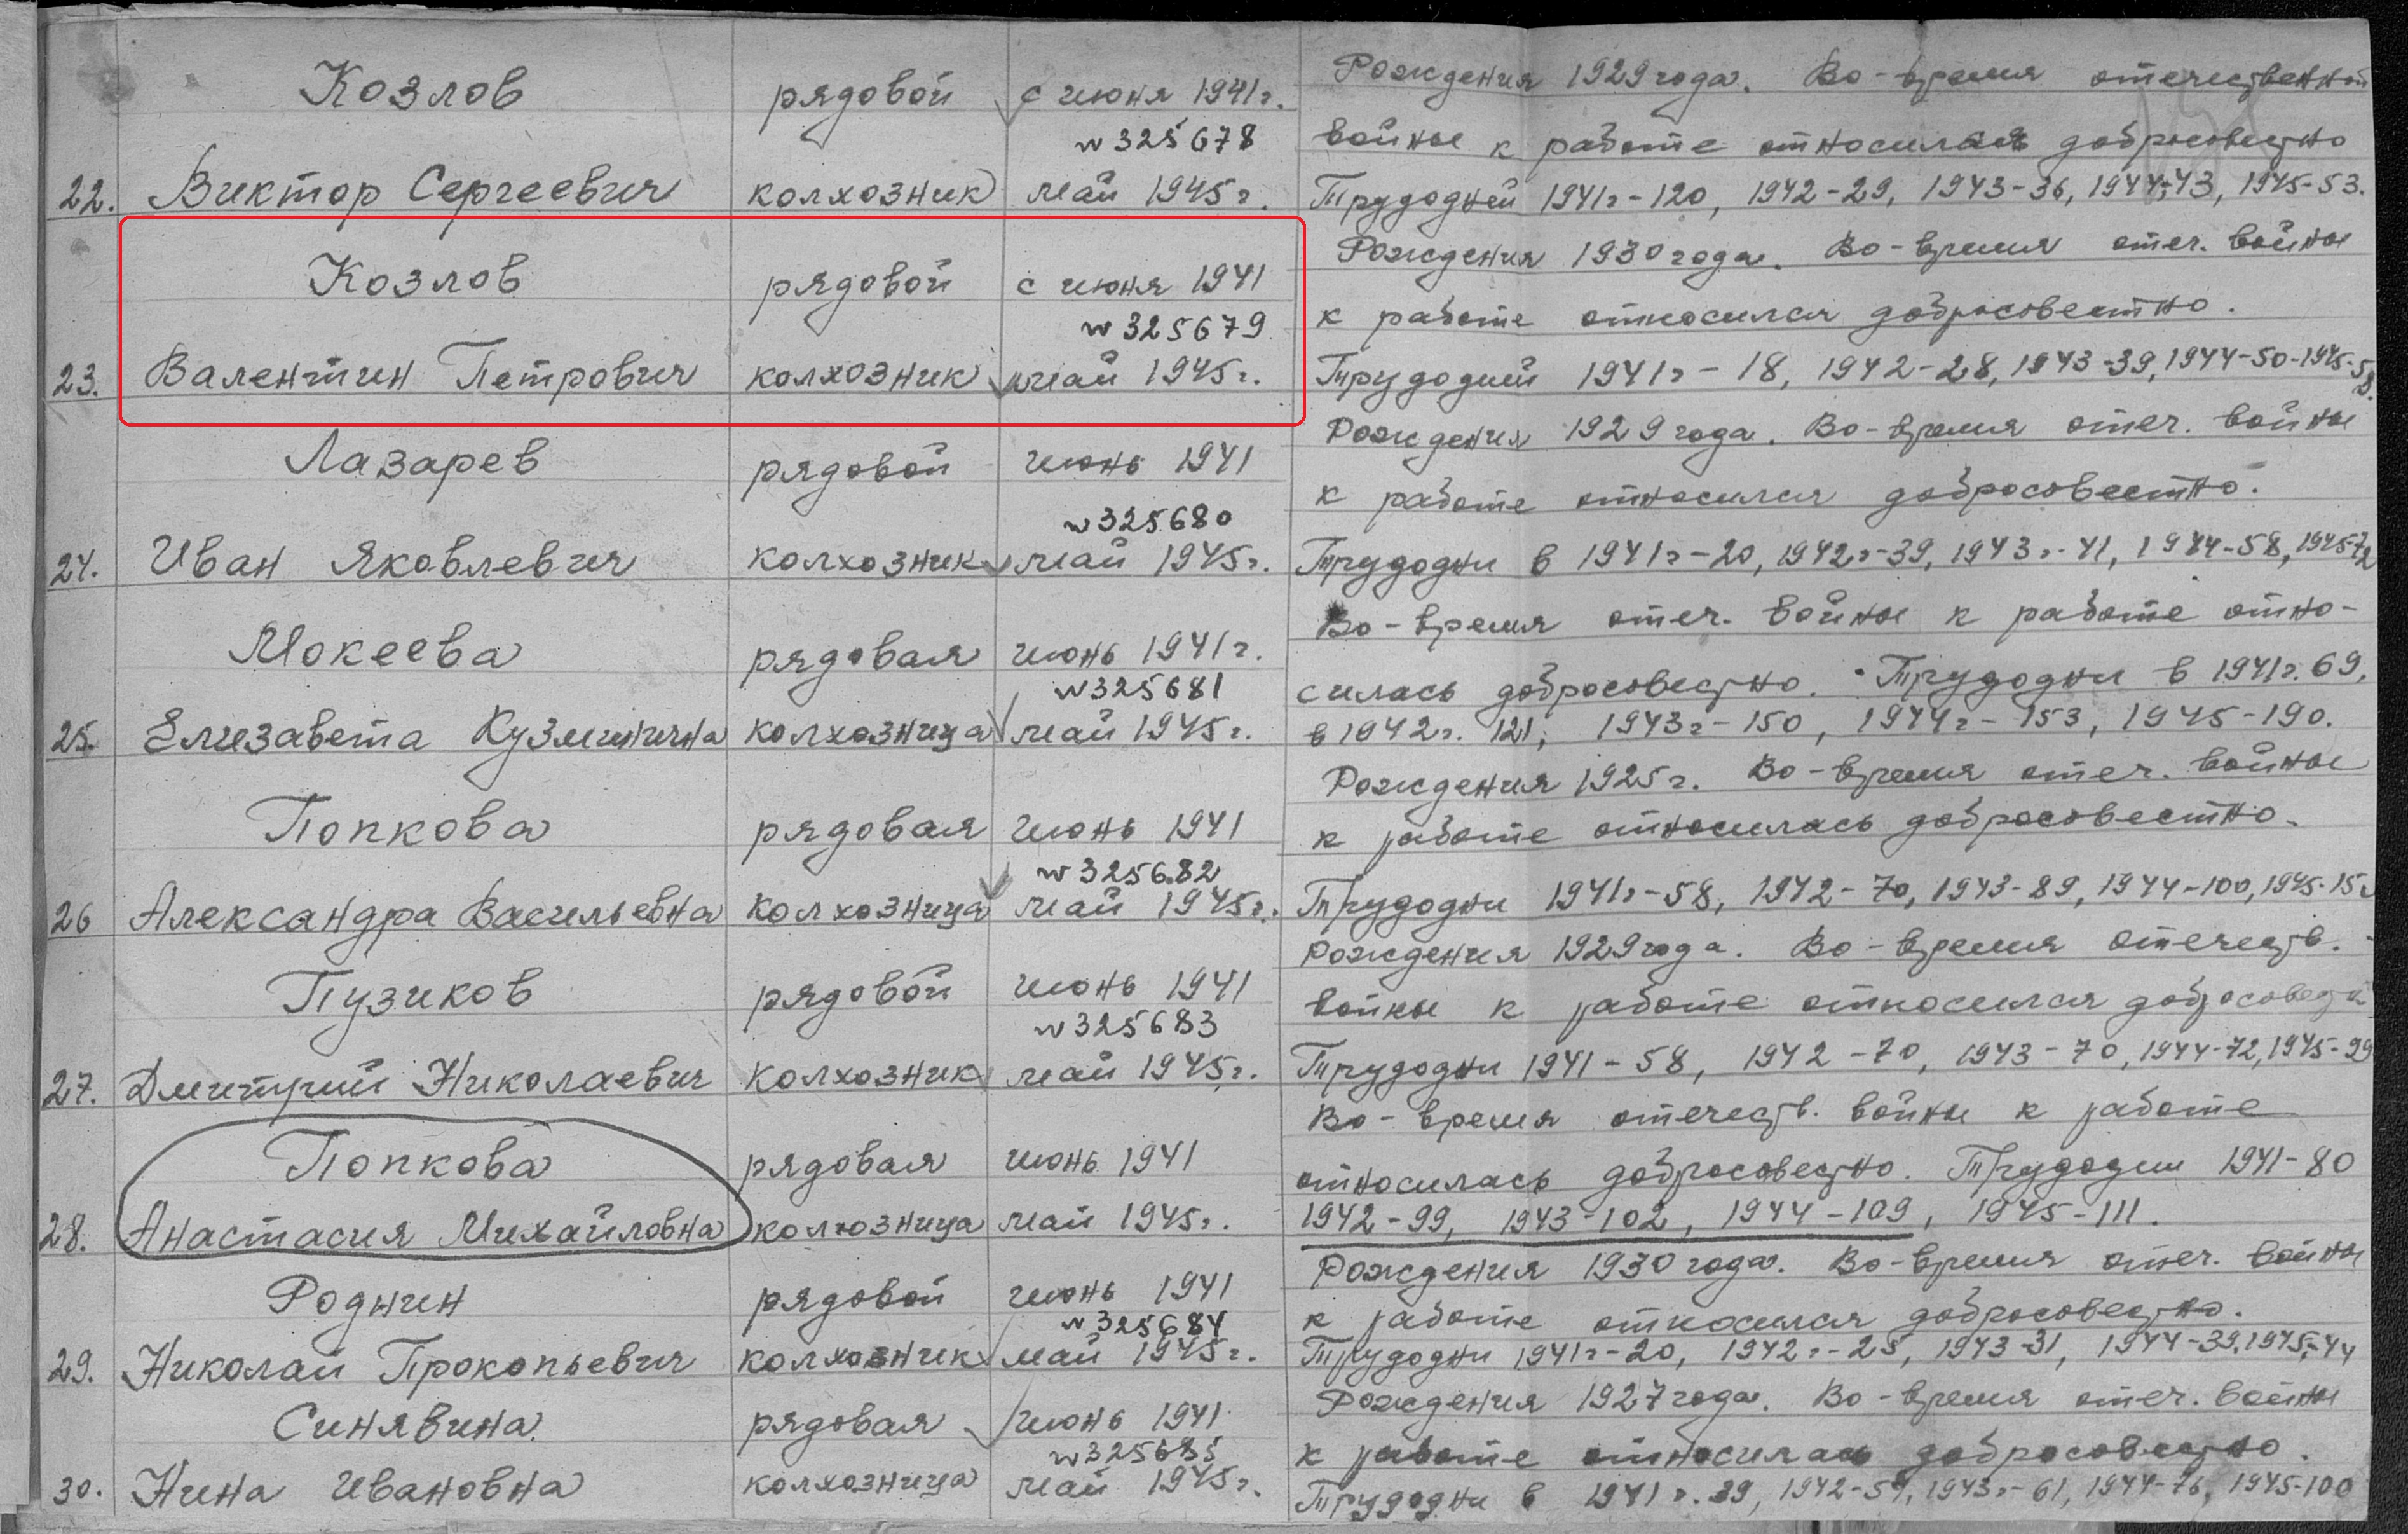 Козлов рядовой с июня 1941г. Рождения 1929 года. Во-время отечественной
w 325678 войны к работе относился добросовестно
22. Виктор Сергеевич колхозник май 1945г. Трудодней 1941г-120, 1942-29, 1943-36, 1944-43, 1945-53.
Козлов рядовой с июня 1941 Рождения 1930 года. Во-время отеч. войны
w 325679 к работе относился добросовестно.
23. Валентин Петрович колхозник май 1945г. Трудодней 1941г-18, 1942-28, 1943-39, 1944-50-1945-58.
Лазарев рядовой июнь 1941 Рождения 1929 года. Во-время отеч. войны
w 325680 к работе относился добросовестно.
24. Иван Яковлевич колхозник май 1945г. Трудодни в 1941г-20, 1942г-39, 1943г-41, 1944-58, 1945-72
Мокеева рядовая июнь 1941г. Во-время отеч. войны к работе отно-
w 325681 силась добросовестно. Трудодни в 1941г. 69,
25. Елизавета Кузминична колхозница май 1945г. в 1942г. 121, 1943г-150, 1944г-153, 1945-190.
Попкова рядовая июнь 1941 Рождения 1925г. Во-время отеч. войны
w 325682 к работе относилась добросовестно.
26 Александра Васильевна колхозница май 1945г. Трудодни 1941г-58, 1942-70, 1943-89, 1944-100, 1945-
Пузиков рядовой июнь 1941 Рождения 1929 года. Во-время отечеств.
w 325683 войны к работе относился
27. Дмитрий Николаевич колхозник май 1945г. Трудодни 1941-58, 1942-70, 1943-70, 1944-72, 1945-99
Попкова рядовая июнь 1941 Во-время отечеств. войны к работе
относилась добросовестно. Трудодни 1941-80
28. Анастасия Михайловна колхозница май 1945г. 1942-99, 1943-102, 1944-109, 1945-111.
Роднин рядовой июнь 1941 Рождения 1930 года. Во-время отеч. войны
w 325684 к работе относился добросовестно.
29. Николай Прокопьевич колхозник май 1945г. Трудодни 1941г-20, 1942г-25, 1943-31, 1944-39, 1945-44
Синявина рядовая июнь 1941 Рождения 1927 года. Во-время отеч. войны
w 325685 к работе относилась добросовестно.
30. Нина Ивановна колхозница май 1945г. Трудодни в 1941г. 39, 1942-59, 1943г-61, 1944-76, 1945-100